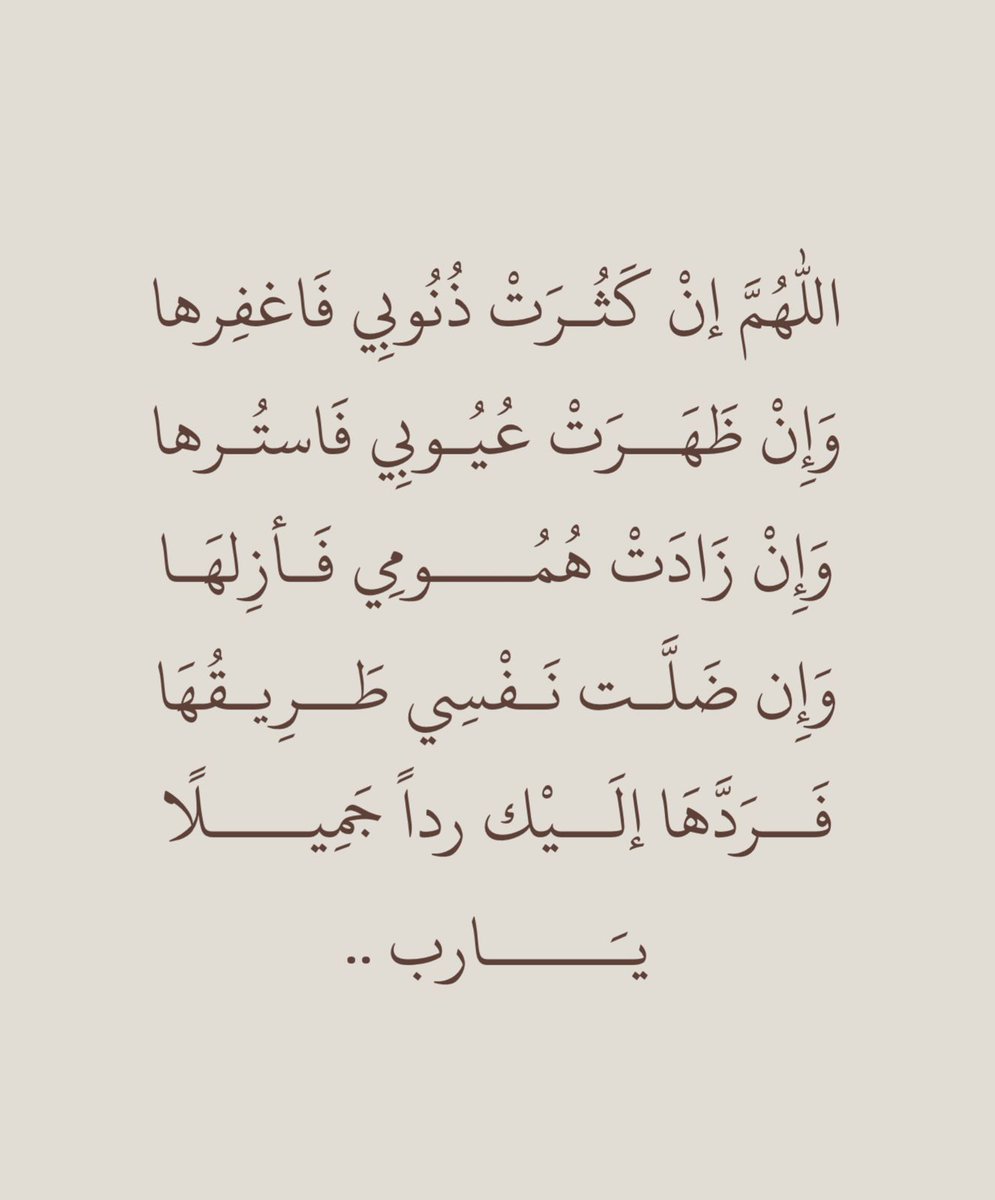 اللّٰهُمَّ إنْ كَثُـرَتْ ذُنُوبِي فَاغفِرها
وَإِنْ ظَهَـــرَتْ عُيُـوبِي فَاستُـرها
وَإِنْ زَادَتْ هُمُـــــومِي فَـأزِلهَـا
وَإِن ضَلَّـت نَـفْسِي طَـــرِيـقُهَا
فَـــرَدَّهَا إلَـــيْك رداً جَمِيـــــلًا
يَـــــــارب ..